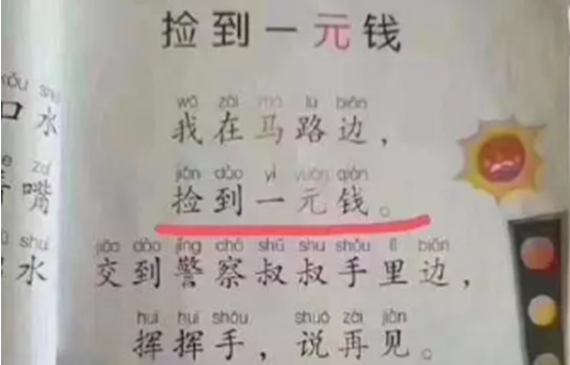 捡到一元钱
wǒ zài mǎ lù biān
我在马路边，
jiǎn dào yì yuán qián
捡到一元钱。
jiāo dào jǐng chá shū shu shǒu lǐ biān
交到警察叔叔手里边，
huī huī shǒu shuō zài jiàn
挥挥手，说再见。
kǒu shu
口水
zuǐ
嘴
shuǐ
水